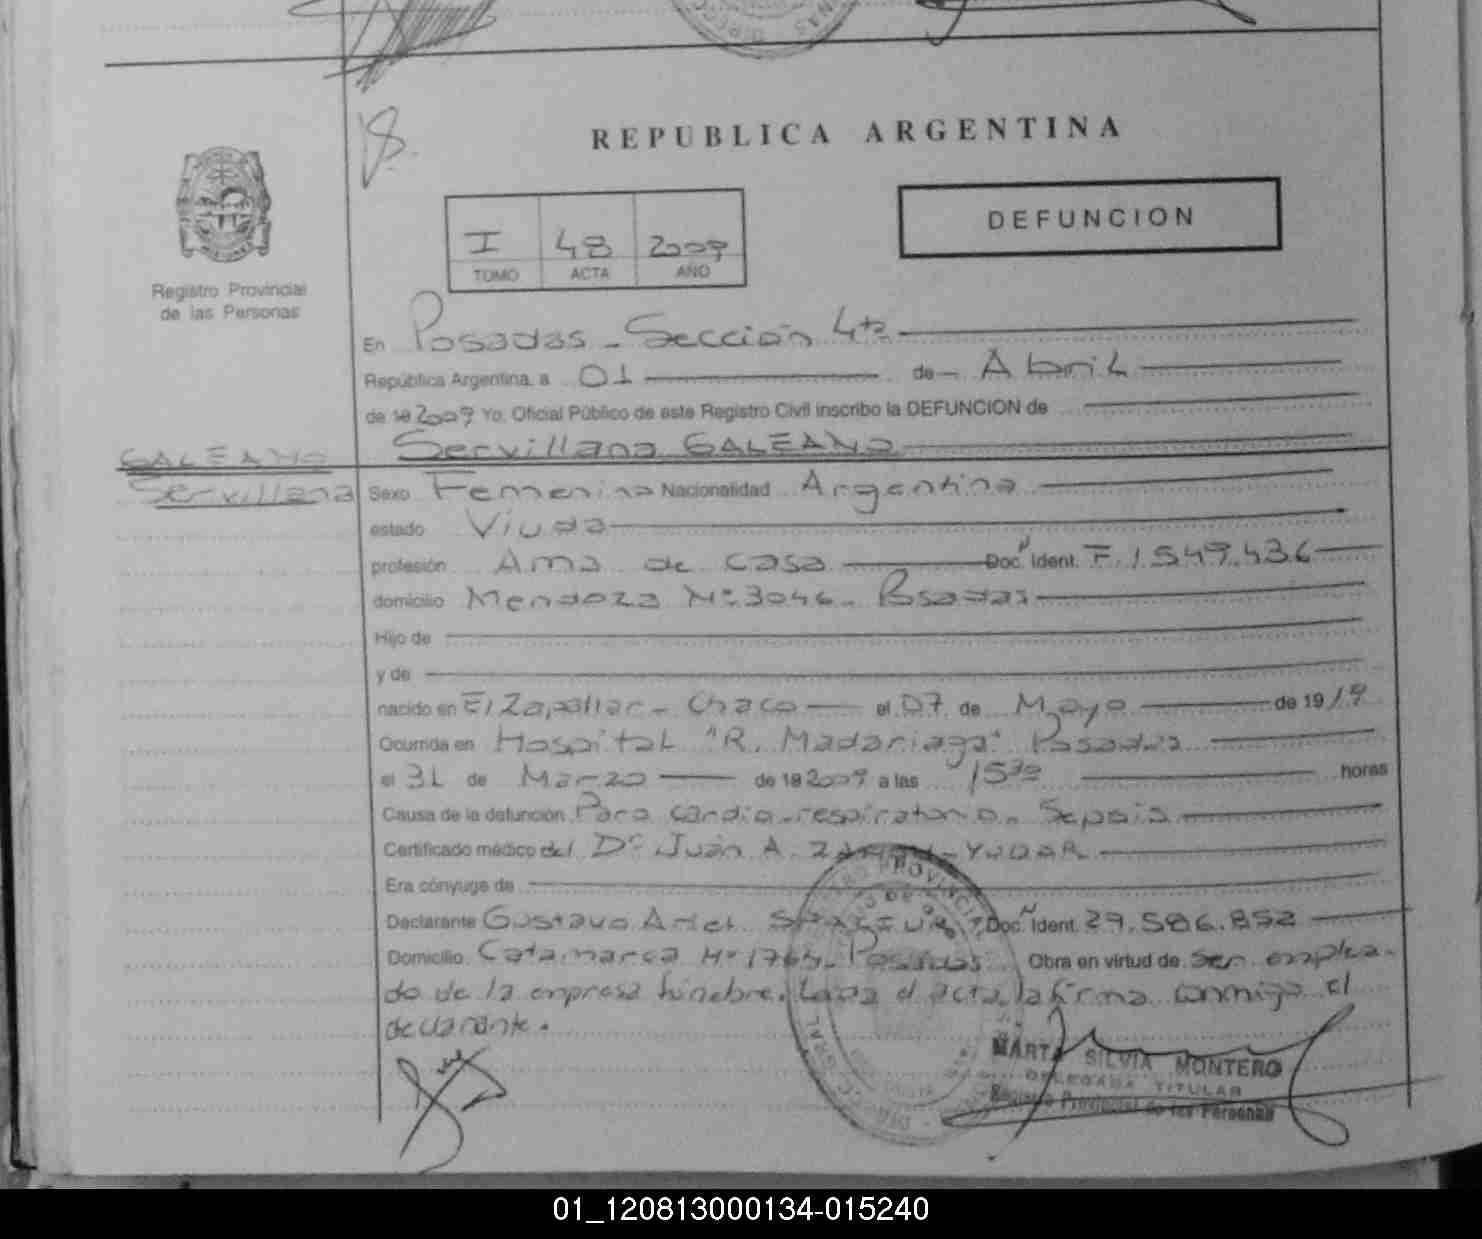 REPUBLICA ARGENTINA
DEFUNCION
I 48 2009
TOMO ACTA AÑO
Registro Provincial
de las Personas
En Posadas - Sección 4ta
República Argentina, a 01 de Abril
de 19 2009 Yo, Oficial Público de este Registro Civil inscribo la DEFUNCION de
Servillana GALEANO
GALEANO
Servillana
Sexo Femenino Nacionalidad Argentina
estado Viuda
profesión Ama de casa Doc. Ident. F. 1.549.436
domicilio Mendoza Nº 3046 - Posadas
Hijo de
y de
nacido en El Zapallar - Chaco el 07 de Mayo de 1919
Ocurrida en Hospital "R. Madariaga" Posadas
el 31 de Marzo de 19 2009 a las 15 30 horas
Causa de la defunción Paro cardio-respiratorio. Sepsis
Certificado médico del Dr. Juán A. YUDAR
Era cónyuge de
Declarante Gustavo Ariel Doc. Ident. 29.586.852
Domicilio Catamarca Nº 1764 - Posadas Obra en virtud de Ser emplea-
do de la empresa fúnebre. Leida el acta, la firma conmigo el
declarante.
MARTA SILVIA MONTERO
DELEGADA TITULAR
Registro Provincial de las Personas
01_120813000134-015240